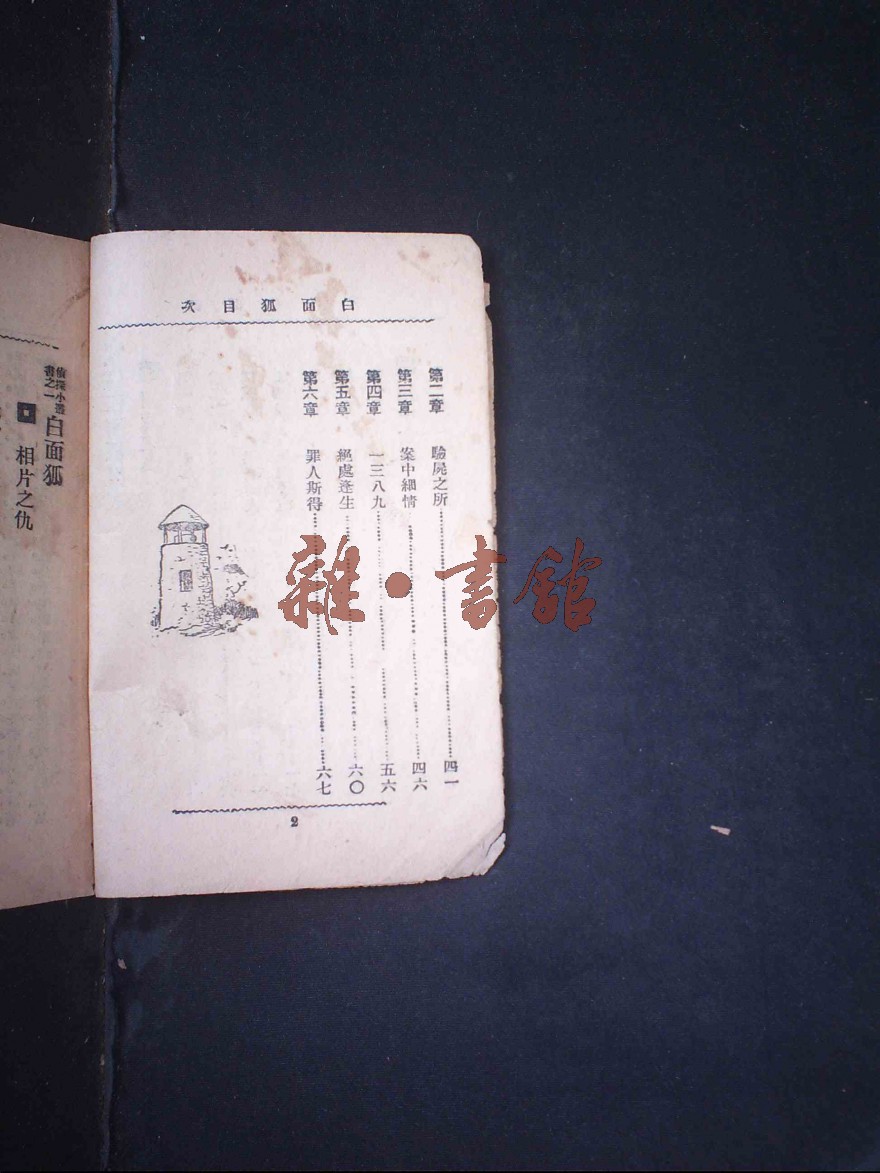 白面狐目次
第二章 驗屍之所 四一
第三章 案中細情 四六
第四章 一三八九 五六
第五章 絕處逢生 六〇
第六章 罪人斯得 六七
2
偵探小叢
書之一
白面狐
相片之仇
雜・書館